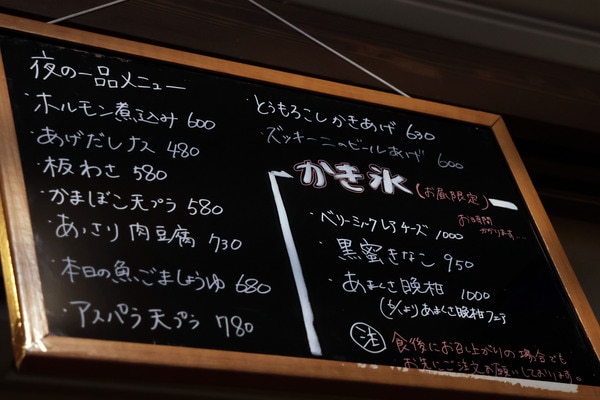 夜の一品メニュー
・ホルモン煮込み 600
・あげだしナス 480
・板わさ 580
・かまぼこ天プラ 580
・あっさり肉豆腐 730
・本日の魚ごましょうゆ 680
・アスパラ天プラ 780
・とうもろこしかきあげ 630
・ズッキーニのビールあげ 600
かき氷(お昼限定)
お時間
かかります…
・ベリーミックレアチーズ 1000
・黒蜜きなこ 950
・あまくさ晩柑 1000
(6/1よりあまくさ晩柑フェア
注 食後にお召し上がりの場合でも
お先にご注文お願いしております。